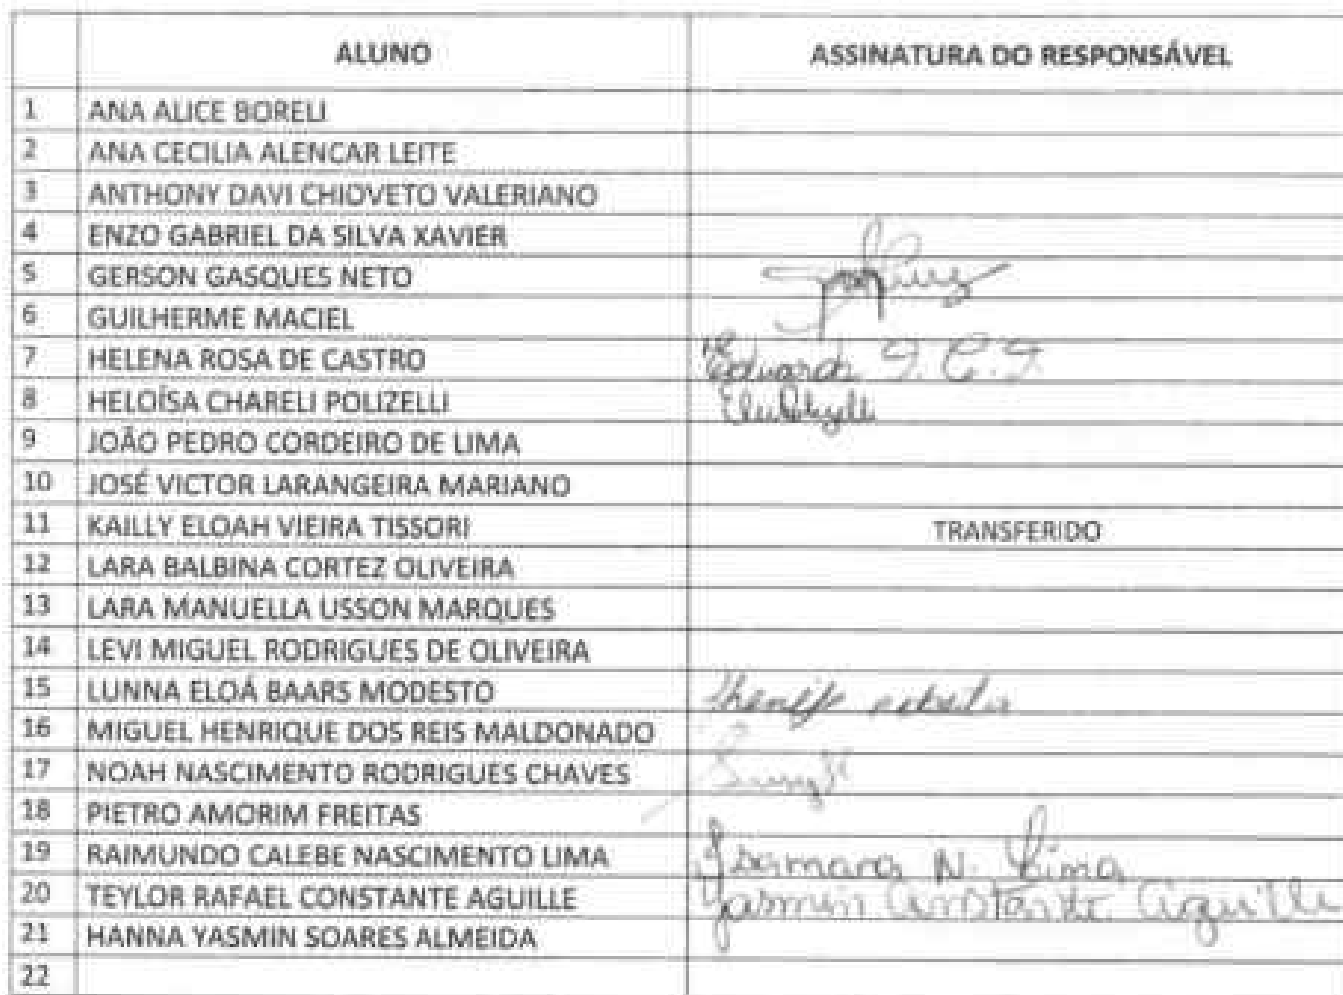 ALUNO ASSINATURA DO RESPONSÁVEL
1 ANA ALICE BORELI
2 ANA CECILIA ALENCAR LEITE
3 ANTHONY DAVI CHIOVETO VALERIANO
4 ENZO GABRIEL DA SILVA XAVIER
5 GERSON GASQUES NETO
6 GUILHERME MACIEL
7 HELENA ROSA DE CASTRO Eduardo
8 HELOÍSA CHARELI POLIZELLI
9 JOÃO PEDRO CORDEIRO DE LIMA
10 JOSÉ VICTOR LARANGEIRA MARIANO
11 KAILLY ELOAH VIEIRA TISSORI TRANSFERIDO
12 LARA BALBINA CORTEZ OLIVEIRA
13 LARA MANUELLA USSON MARQUES
14 LEVI MIGUEL RODRIGUES DE OLIVEIRA
15 LUNNA ELOÁ BAARS MODESTO
16 MIGUEL HENRIQUE DOS REIS MALDONADO
17 NOAH NASCIMENTO RODRIGUES CHAVES
18 PIETRO AMORIM FREITAS
19 RAIMUNDO CALEBE NASCIMENTO LIMA Isamara N. Lima
20 TEYLOR RAFAEL CONSTANTE AGUILLE Yasmin Constante Aguille
21 HANNA YASMIN SOARES ALMEIDA
22